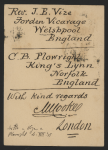 Rev. J. E. Vize
Forden Vicarage
Welshpool
England
C. B. Plowright
King's Lynn
Norfolk
England
With kind regards
M C Cooke
London